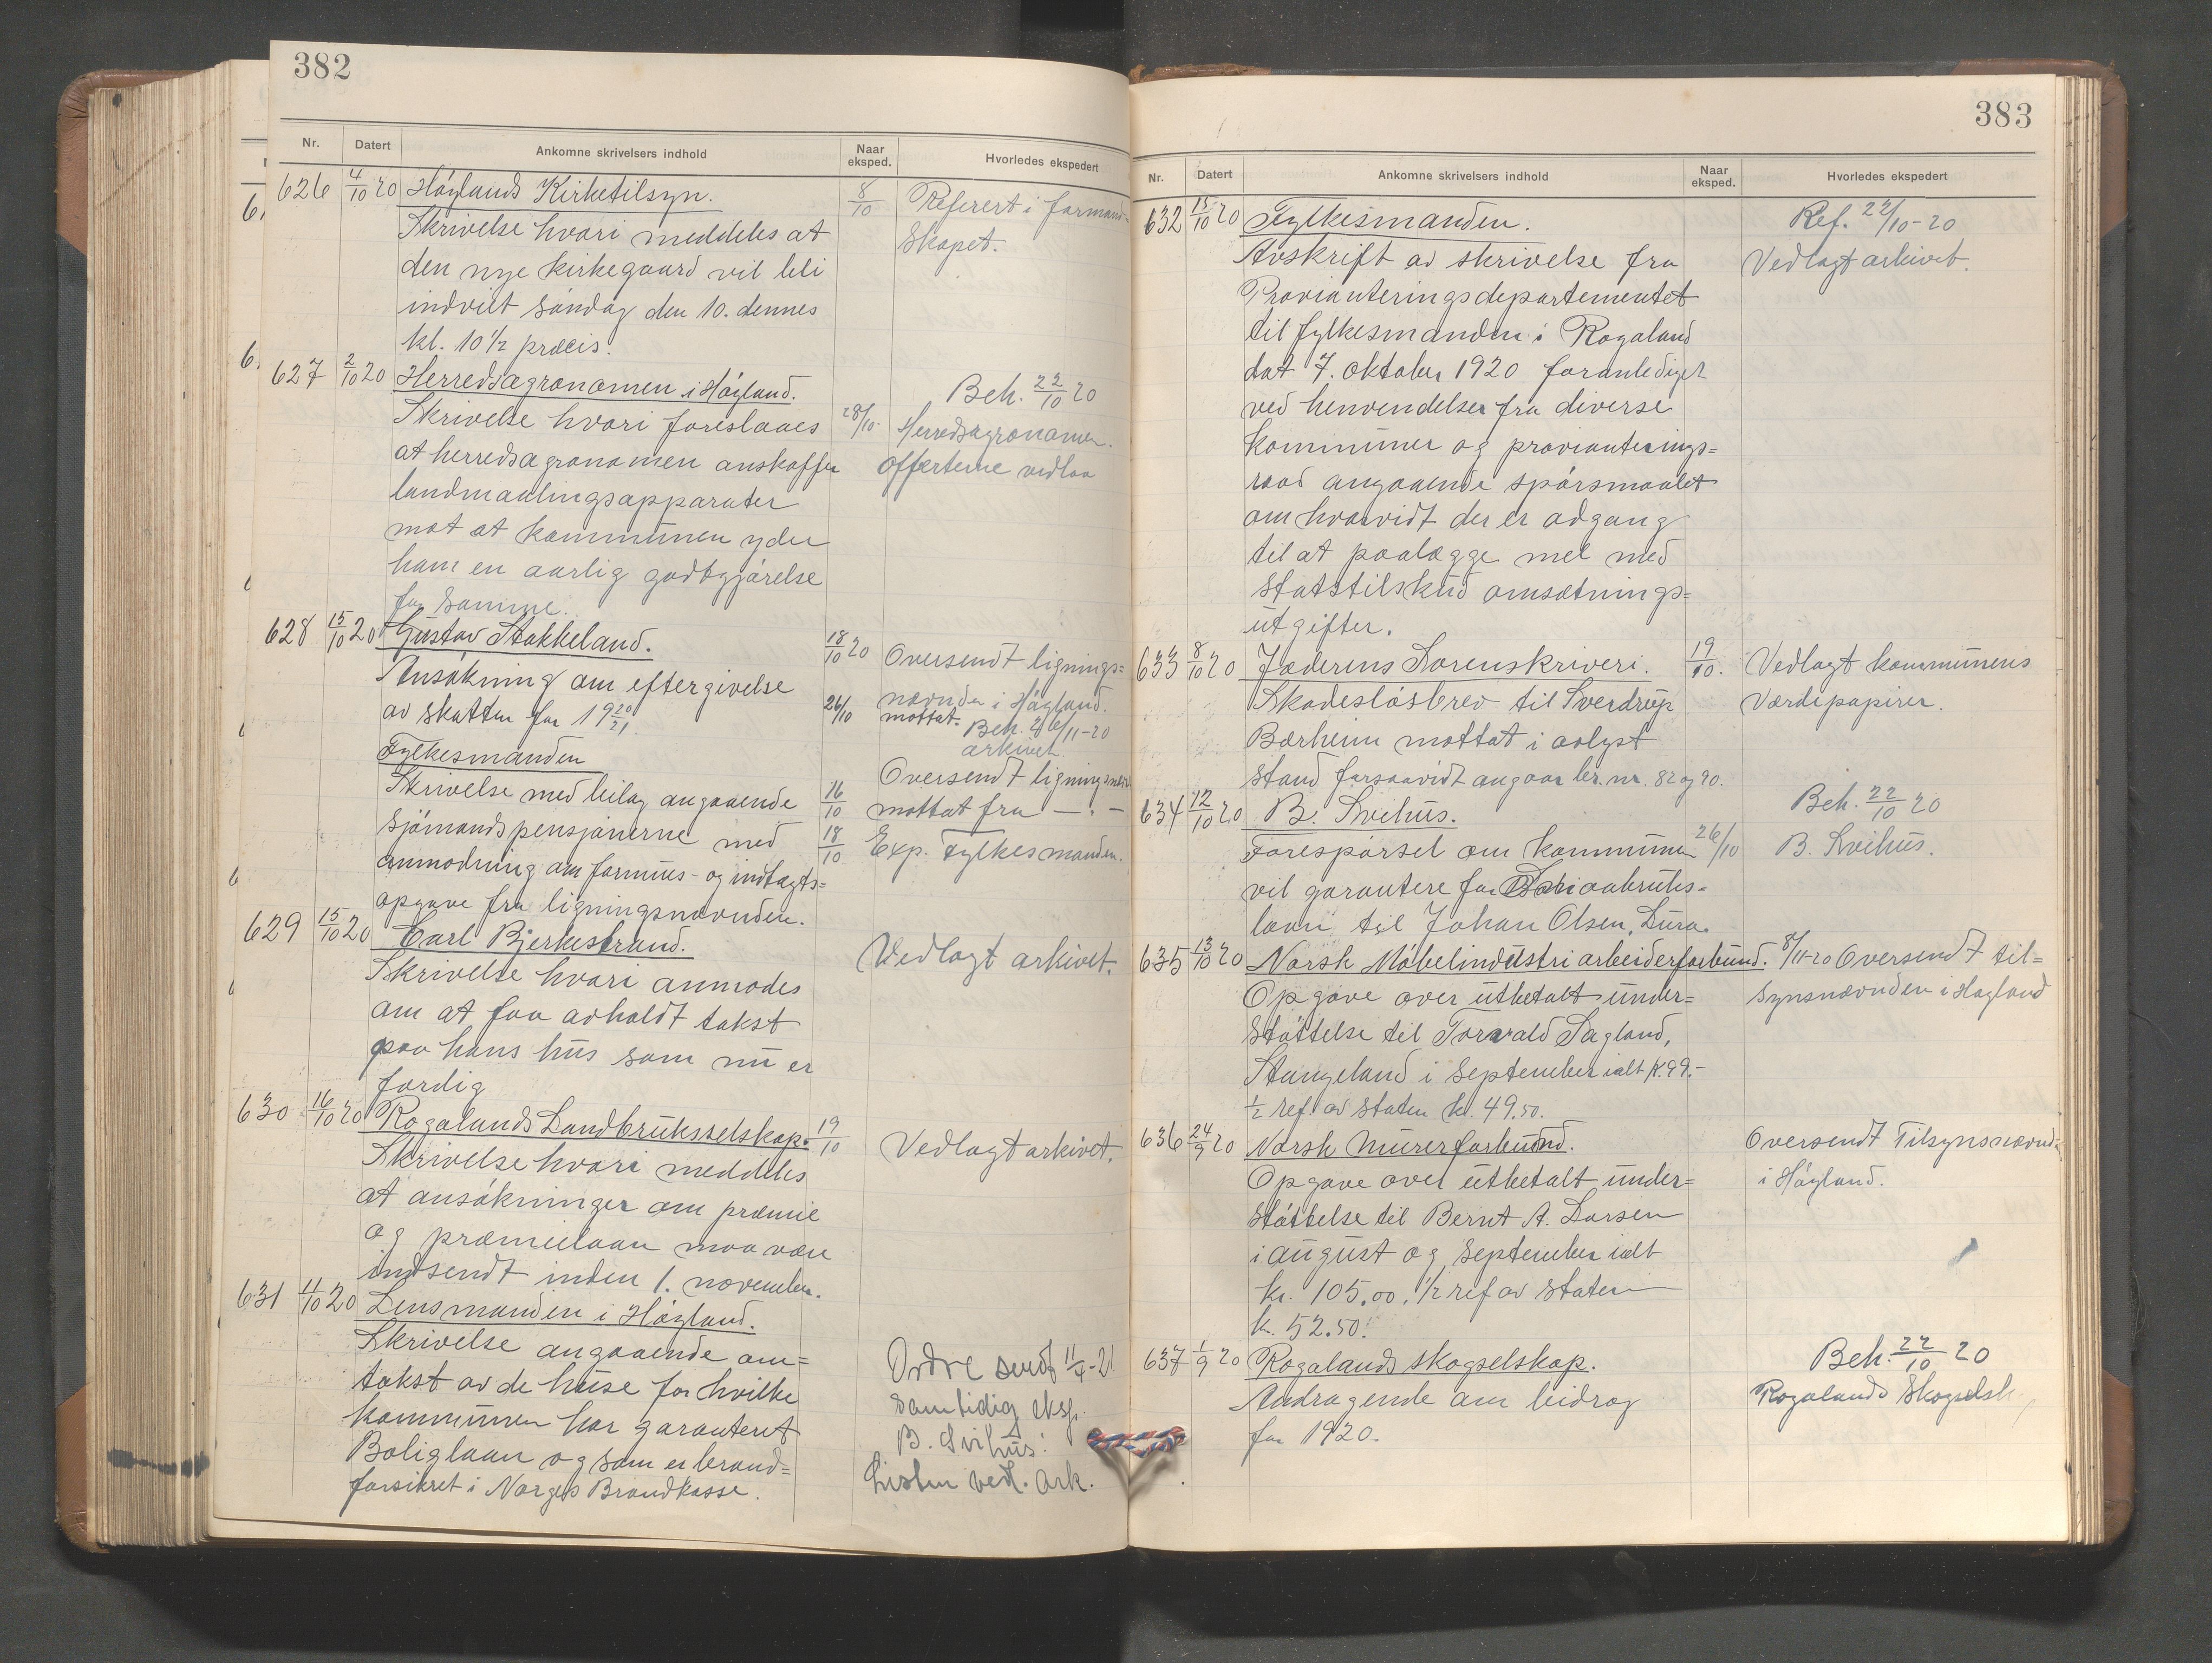 382
Nr. Datert Ankomne skrivelsers indhold Naar eksped. Hvorledes ekspedert
626 4/10 20 Höylands Kirketilsyn. 8/10 Referert i formand-
Skrivelse hvori meddeles at skapet.
den nye kirkegaard vil bli
indviet söndag den 10. dennes
kl. 10 1/2 præcis.
627 2/10 20 Herredsagronomen i Höyland. Beh. 22/10 20
Skrivelse hvori foreslaaes 28/10 Herredsagronomen.
at herredsagronomen anskaffer Offerterne vedlaa
landmaalingsapparater
mot at kommunen yder
ham en aarlig godtgjörelse
for samme.
628 15/10 20 Gustav Stokkeland. 18/10 20 Oversendt lignings=
Ansökning om eftergivelse nævnden i Höyland.
av skatten for 19 20/21. 26/10 mottat. Beh. 26/11-20
arkivet
Fylkesmanden Oversendt ligningsnævn
Skrivelse med bilag angaaende 16/10 mottat fra — " —
sjömandspensjonerne med 18/10 Exp. Fylkesmanden.
anmodning om formues- og indtægts=
opgave fra ligningsnævnden.
629 15/10 20 Carl Bjerkestrand. Vedlagt arkivet.
Skrivelse hvori anmodes
om at faa avholdt takst
paa hans hus som nu er
færdig
630 16/10 20 Rogalands Landbruksselskap. 19/10 Vedlagt arkivet.
Skrivelse hvori meddeles
at ansökninger om præmie
og præmielaan maa være
indsendt inden 1. november.
631 4/10 20 Lensmanden i Höyland.
Skrivelse angaaende om= Ordre sendt 11/4-21
takst av de huse for hvilke samtidig eksp.
kommunen har garanteret B. Svihus.
Boliglaan og som er brand= Listen vedl. ark.
forsikret i Norges Brandkasse.
383
Nr. Datert Ankomne skrivelsers indhold Naar eksped. Hvorledes ekspedert
632 15/10 20 Fylkesmanden. Ref. 22/10-20
Avskrift av skrivelse fra Vedlagt arkivet.
Provianteringsdepartementet
til fylkesmanden i Rogaland
dat 7. oktober 1920 foranlediget
ved henvendelser fra diverse
kommuner og provianterings=
raad angaaende spörsmaalet
om hvorvidt der er adgang
til at paalægge mel med
statstilskud omsætnings=
utgifter.
633 8/10 20 Jæderens Sorenskriveri. 19/10. Vedlagt kommunens
Skadeslösbrev til Sverdrup Værdipapirer.
Bærheim mottat i avlyst
stand forsaavidt angaar br. nr. 82 og 90.
634 12/10 20 B. Svihus. Beh. 22/10 20
Forespörsel om kommunen 26/10 B. Svihus.
vil garantere for Smaabruks=
laan til Johan Olsen, Lura.
635 13/10 20 Norsk Möbelindustriarbeiderforbund. 8/11-20 Oversendt til=
Opgave over utbetalt under= synsnævnden i Høyland
stöttelse til Torvald Sagland,
Stangeland i september ialt k. 99.-
1/2 ref. av staten kr. 49.50.
636 24/9 20 Norsk Murerforbund. Oversendt Tilsynsnævnd.
Opgave over utbetalt under= i Höyland.
stöttelse til Bernt A. Larsen
i august og september ialt
kr. 105.00. 1/2 ref av staten
k. 52.50.
637 1/9 20 Rogalands skogselskap. Beh. 22/10 20
Andragende om bidrag Rogalands Skogselsk.
for 1920.